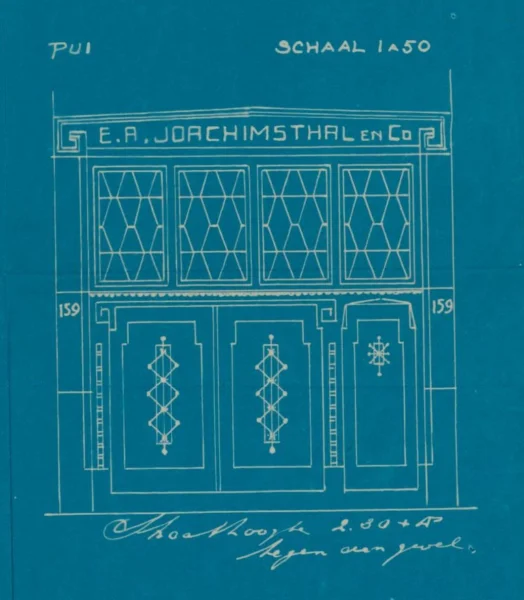 PUI
SCHAAL 1 A 50
E.A. JOACHIMSTHAL EN Co
159
159
2.80 + AP
tegen den gevel.